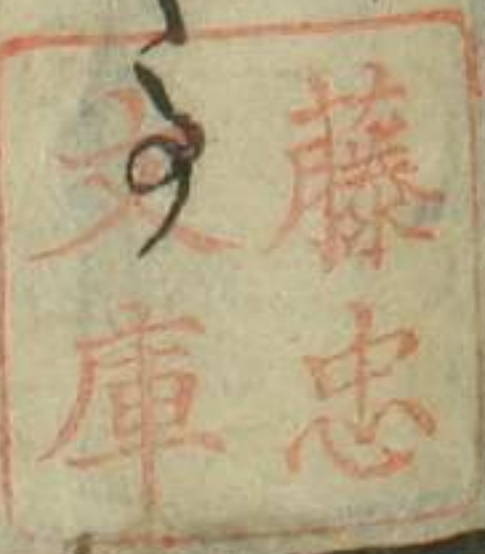 藤忠
文庫